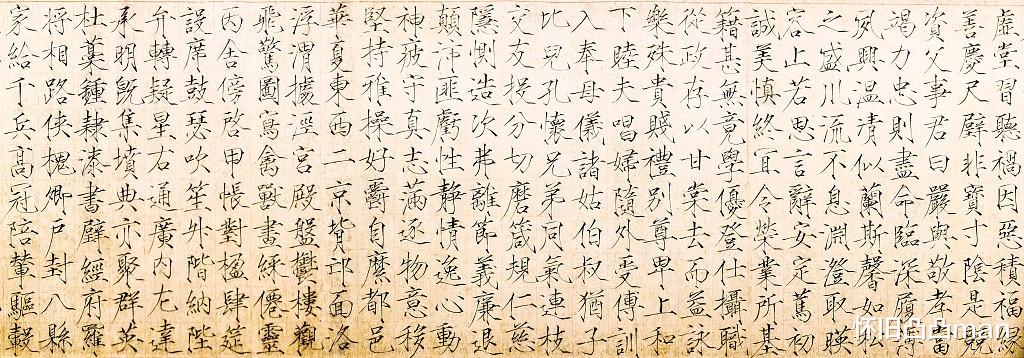 虛堂習聽禍因惡積福緣
善慶尺璧非寶寸陰是競
資父事君曰嚴與敬孝當
竭力忠則盡命臨深履薄
夙興溫凊似蘭斯馨如松
之盛川流不息淵澄取暎
容上若思言辭安定篤初
誠美慎終宜令榮業所基
籍甚無竟學優登仕攝職
從政存以甘棠去而益詠
樂殊貴賤禮別尊卑上和
下睦夫唱婦隨外受傅訓
入奉母儀諸姑伯叔猶子
比兒孔懷兄弟同氣連枝
交友投分切磨箴規仁慈
隱惻造次弗離節義廉退
顛沛匪虧性靜情逸心動
神疲守真志滿逐物意移
堅持雅操好爵自縻都邑
華夏東西二京背邙面洛
浮渭據涇宮殿盤鬱樓觀
飛驚圖寫禽獸畫綵僊靈
丙舍傍啓甲帳對楹肆筵
設席鼓瑟吹笙升階納陛
弁轉疑星右通廣內左達
承明既集墳典亦聚群英
杜稾鍾隸漆書壁經府羅
將相路俠槐卿戶封八縣
家給千兵高冠陪輦驅轂
怀旧凸凸man